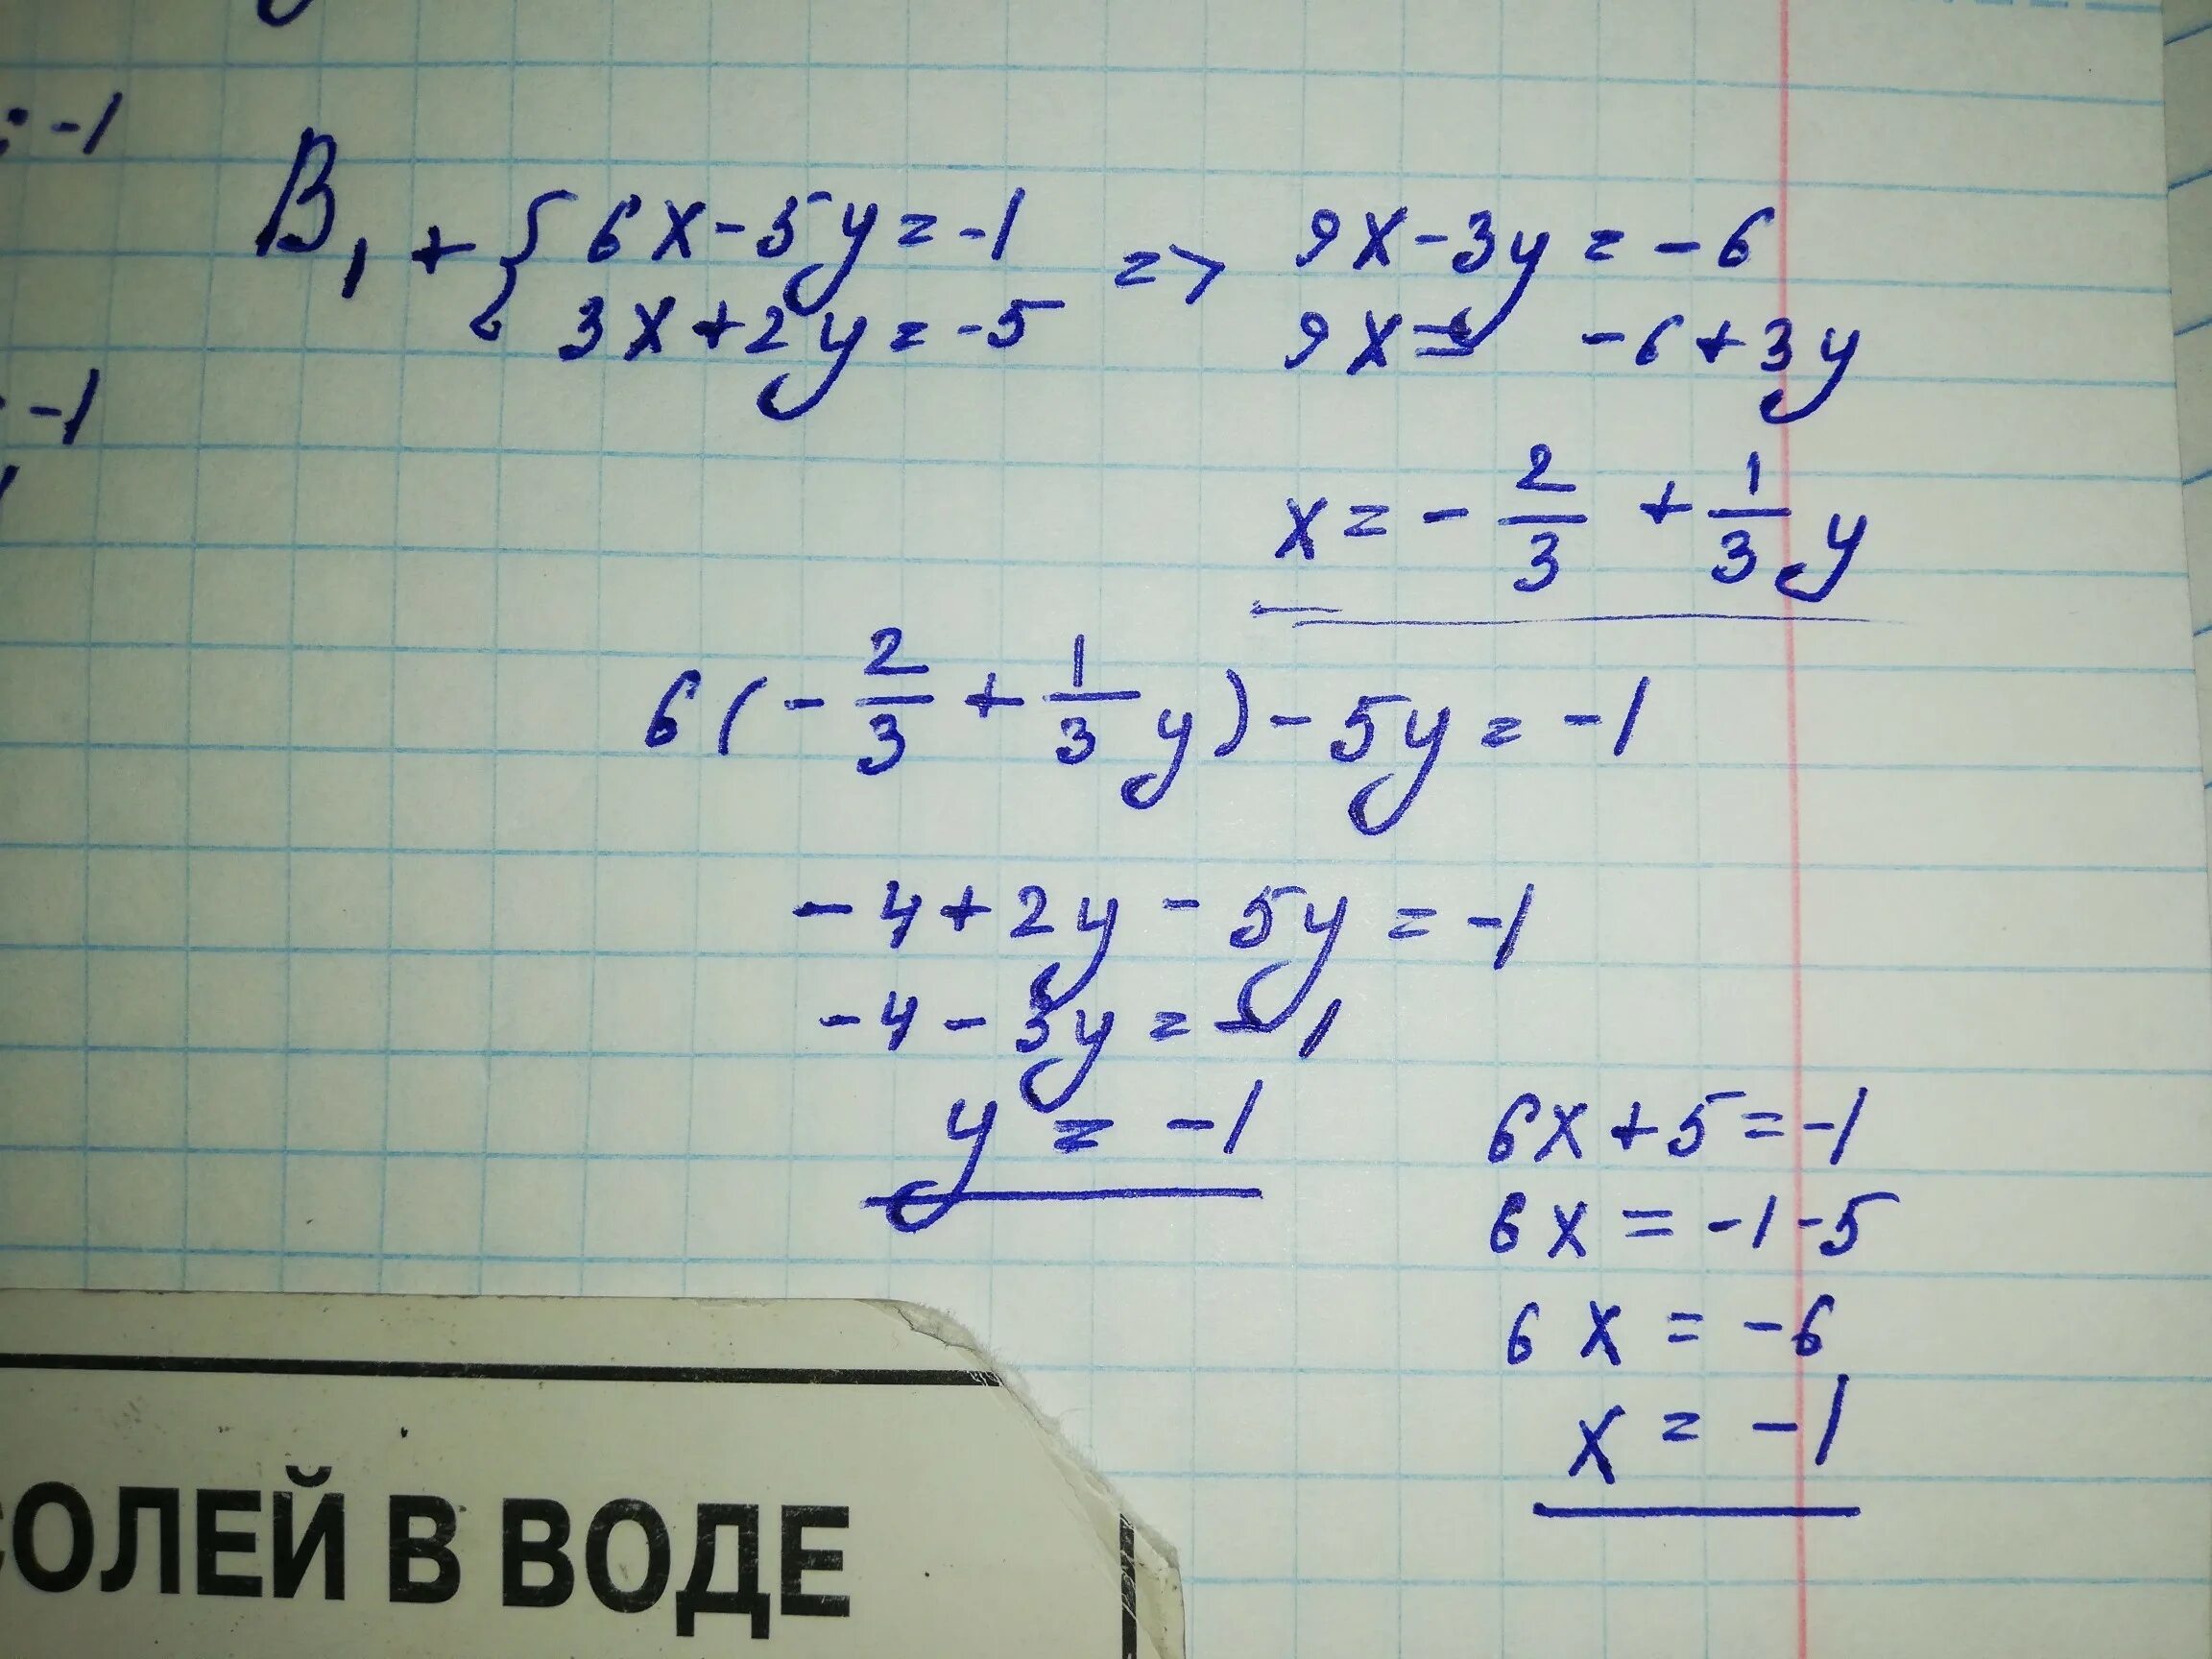 : -1
В, + { 6x - 5y = -1 => 9x - 3y = -6
3x + 2y = -5 9x = -6 + 3y
-1
x = - 2/3 + 1/3 y
6(- 2/3 + 1/3 y) - 5y = -1
-4 + 2y - 5y = -1
-4 - 3y = -1
y = -1
6x + 5 = -1
6x = -1 - 5
6x = -6
x = -1
СОЛЕЙ В ВОДЕ